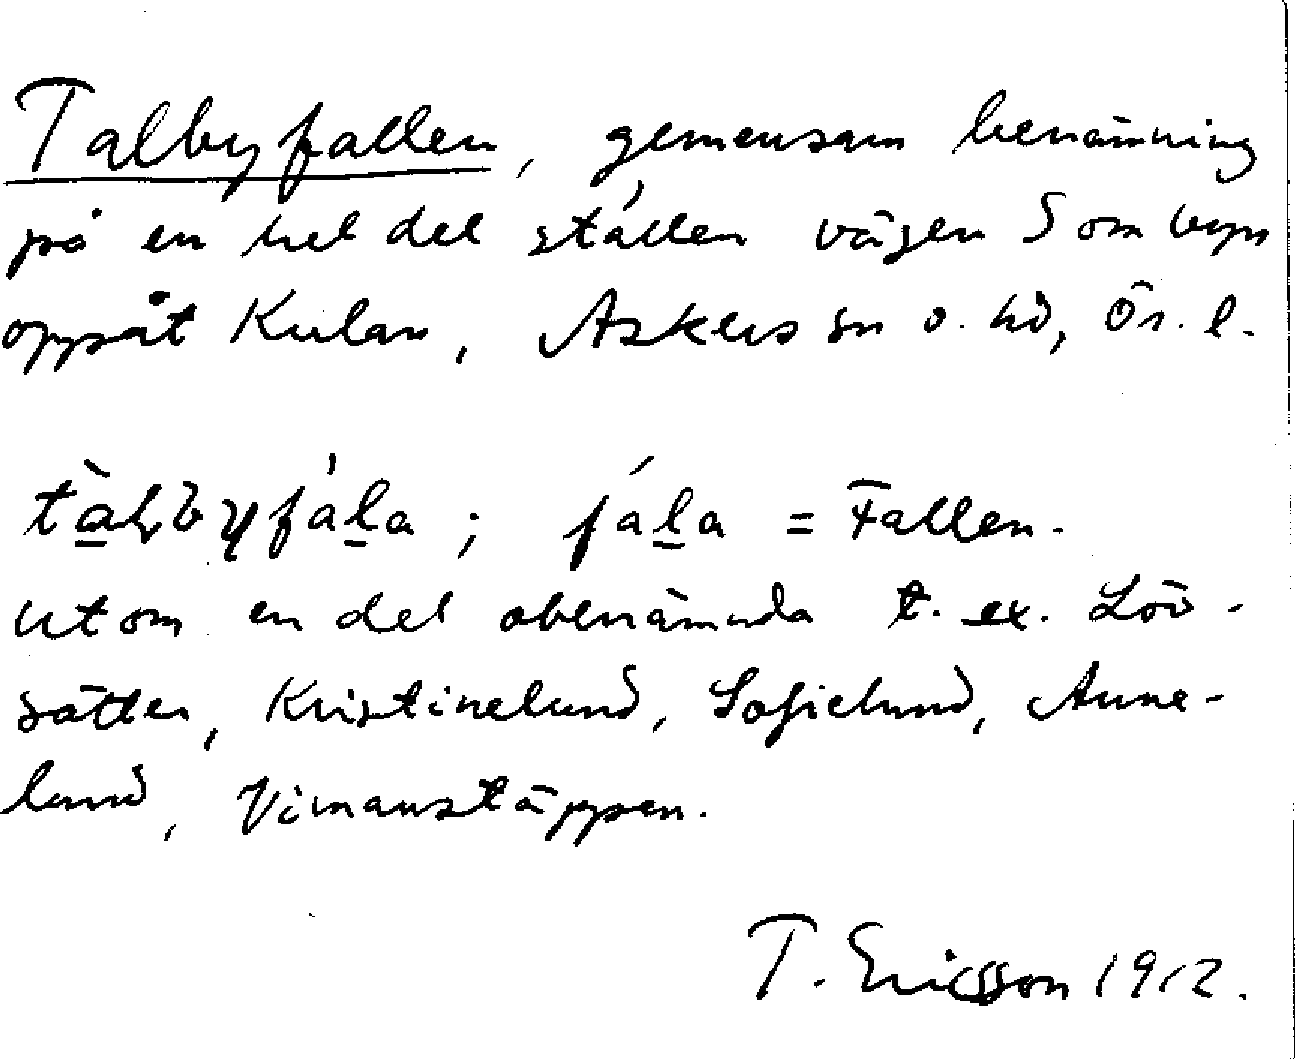 Talbyfallen, gemensam benämning
på en hel del ställen vägen S om byn
oppåt Kulan, Askers sn o. hd, Ör. l.
tàlbyfála; fála = Fallen.
Utom en del obenämnda t. ex. Löv-
sätter, Kristinelund, Sofielund, Anne-
lund, Vimanstäppen.
T. Ericsson 1912.